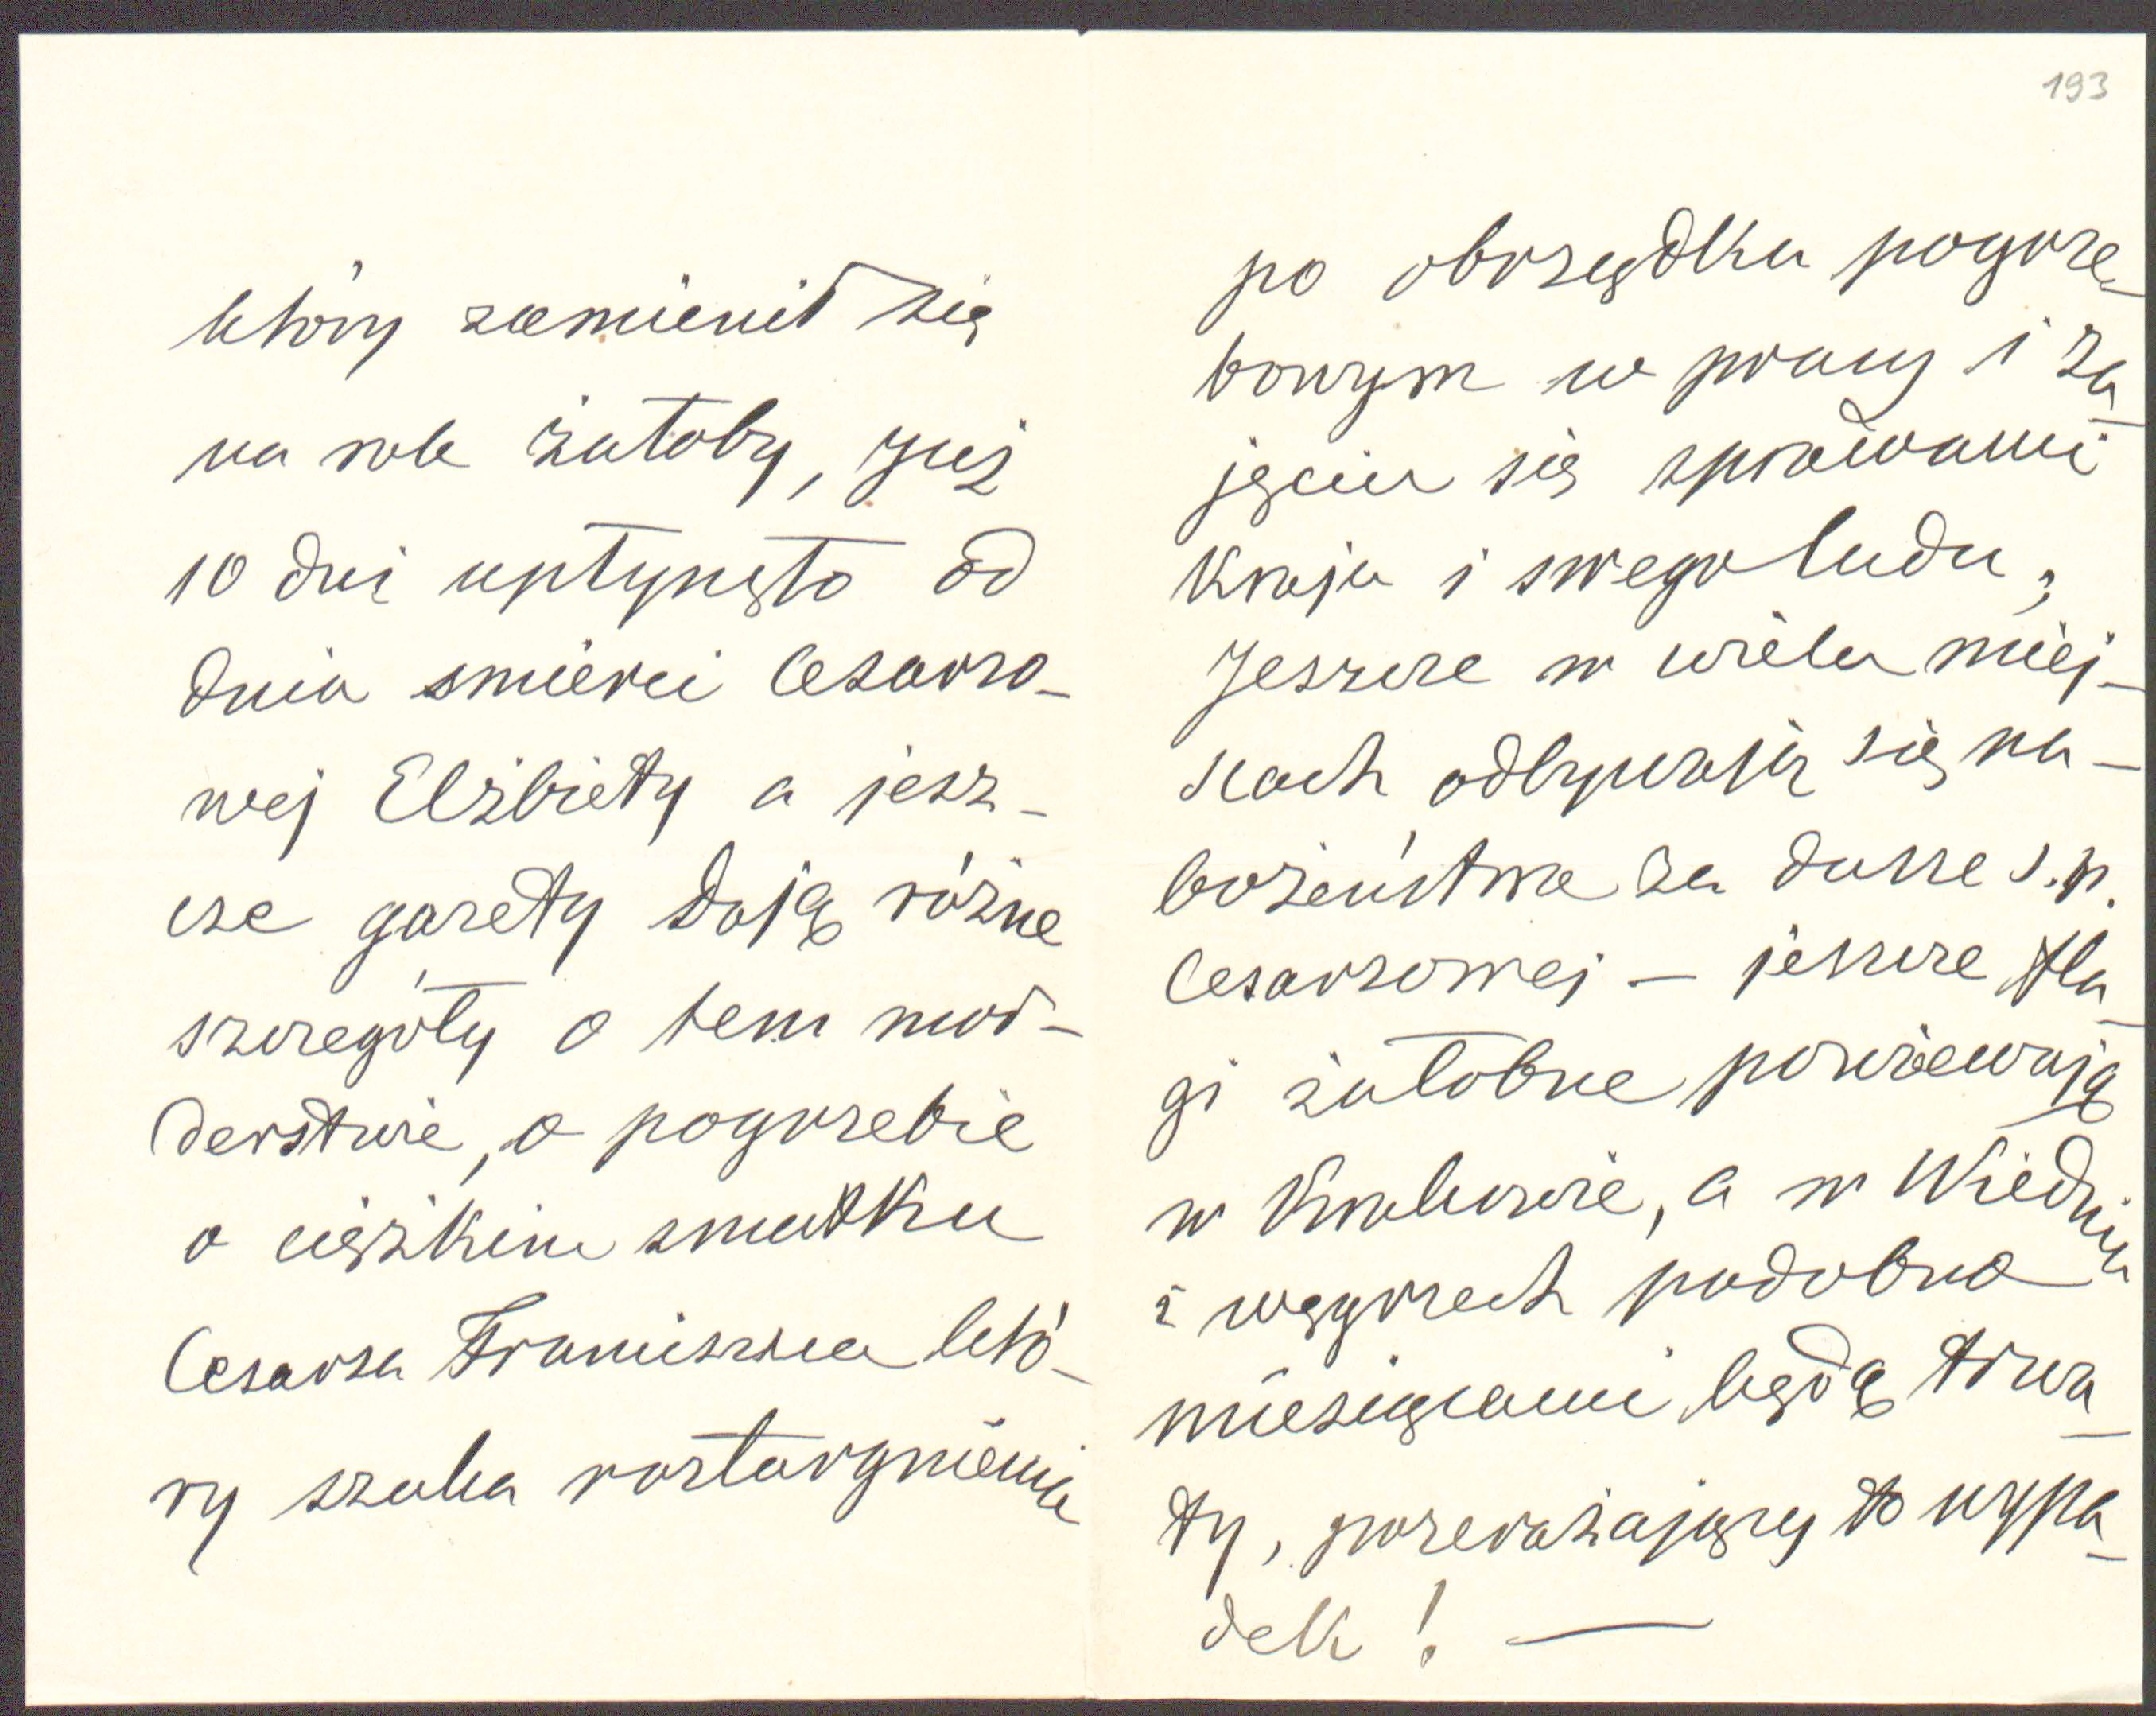 który zamienił się
na rok żałoby, Już
10 dni upłynęło od
dnia smierci Cesarzo-
wej Elżbiety a jesz-
cze gazety dają różne
szczegóły o tem mor-
derstwie, o pogrzebie
o ciężkim smutku
Cesarza Franciszka któ-
ry szuka roztargnienia
193
po obrządku pogrze-
bowym w pracy i za-
jęciu się sprawami
Kraju i swego ludu;
Jeszcze w wielu miej-
scach odbywają się na-
bożeństwa za dusze s.p.
Cesarzowej – jeszcze fla-
gi żałobne powiewają
w Krakowie, a w Wiedniu
i węgrzech podobno
miesiącami będą trwa-
ły, przerażający to wypa-
dek! —